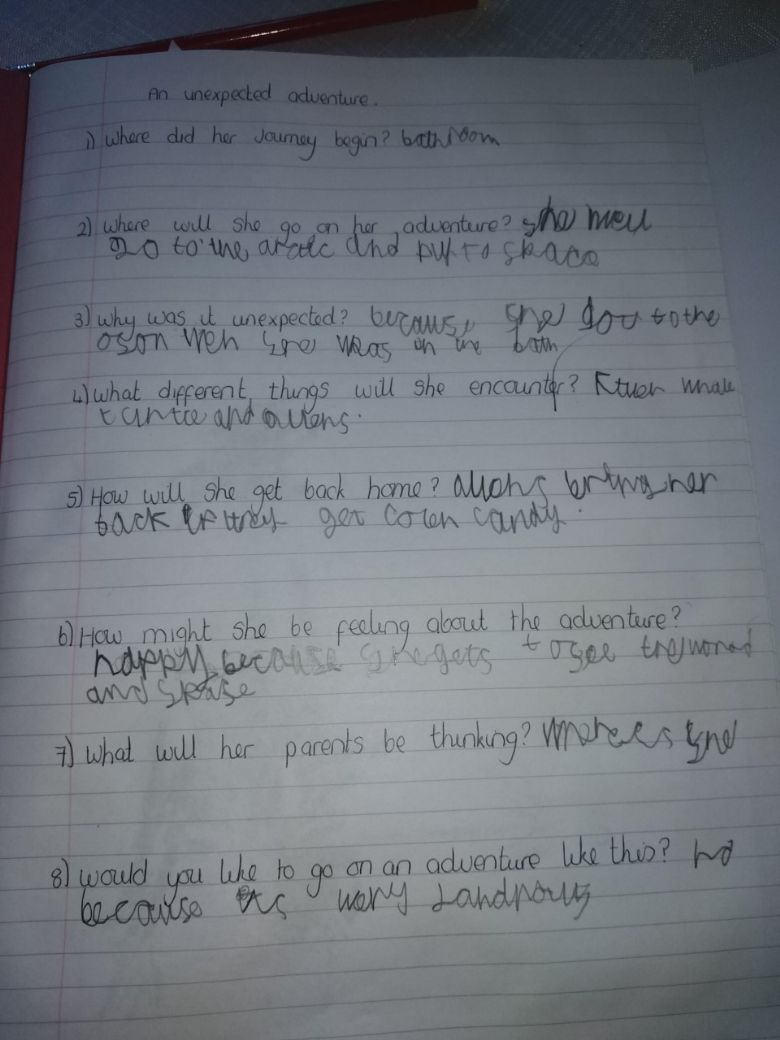 An unexpected adventure.
1) Where did her Journey begin? bathroom
2) Where will she go on her adventure? she
go to the arctic and to space
3) Why was it unexpected? because she got to the
oson wen she was in the bath
4) What different things will she encounter? whale
and aliens.
5) How will she get back home? aliens bring her
back if they get coten candy.
6) How might she be feeling about the adventure?
happy because she gets to see the world
and spase
7) What will her parents be thinking? she
8) would you like to go on an adventure like this? no
because its very